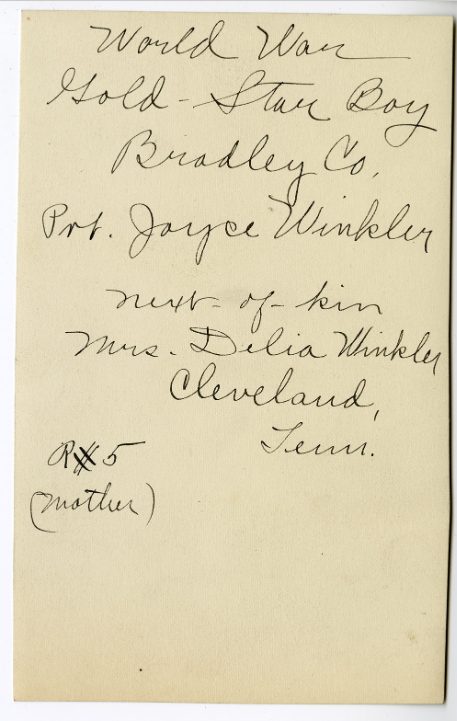 World War
Gold-Star Boy
Bradley Co.
Pvt. Joyce Winkler
next-of-kin
Mrs. Delia Winkler
Cleveland,
Tenn.
R#5
(mother)